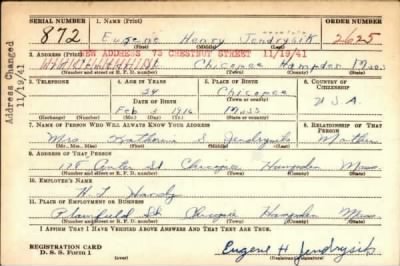 SERIAL NUMBER 1. NAME (Print) ORDER NUMBER
872 Eugene Henry Jendrysik 2625
(First) (Middle) (Last)
Address Changed 11/19/41
2. ADDRESS (Print)
NEW ADDRESS 73 CHESTNUT STREET 11/19/41
St Chicopee Hampden Mass
(Number and street or R. F. D. number) (Town) (County) (State)
3. TELEPHONE 4. AGE IN YEARS 5. PLACE OF BIRTH 6. COUNTRY OF CITIZENSHIP
24 Chicopee
DATE OF BIRTH (Town or county)
Feb 1916 Mass U.S.A.
(Exchange) (Number) (Mo.) (Day) (Yr.) (State or country)
7. NAME OF PERSON WHO WILL ALWAYS KNOW YOUR ADDRESS 8. RELATIONSHIP OF THAT PERSON
Mrs Katherine S Jendrysik Mother
(Mr., Mrs., Miss) (First) (Middle) (Last)
9. ADDRESS OF THAT PERSON
Center St Chicopee Hampden Mass
(Number and street or R. F. D. number) (Town) (County) (State)
10. EMPLOYER'S NAME
H. L. Handy
11. PLACE OF EMPLOYMENT OR BUSINESS
Plainfield St Chicopee Hampden Mass
(Number and street or R. F. D. number) (Town) (County) (State)
I AFFIRM THAT I HAVE VERIFIED ABOVE ANSWERS AND THAT THEY ARE TRUE.
REGISTRATION CARD
D. S. S. FORM 1
(over)
Eugene H Jendrysik
(Registrant's signature)